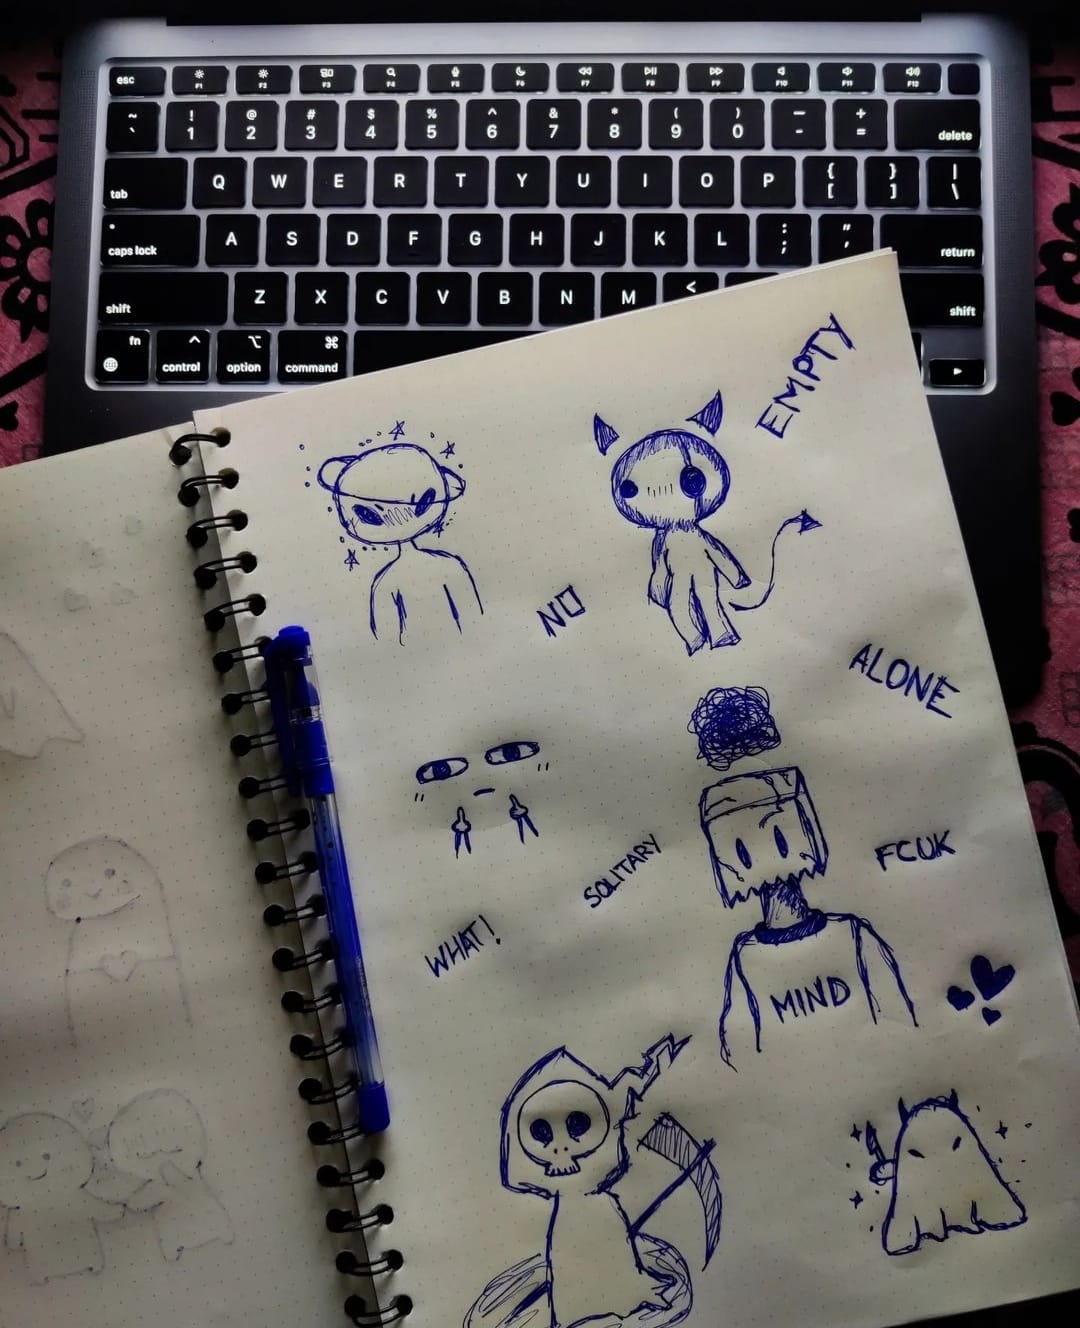 esc F1 F2 F3 F4 F5 F6 F7 F8 F9 F10 F11 F12
~ ` ! 1 @ 2 # 3 $ 4 % 5 ^ 6 & 7 * 8 ( 9 ) 0 — - + = delete
tab Q W E R T Y U I O P { [ } ] | \
caps lock A S D F G H J K L : ; " ' return
shift Z X C V B N M < shift
fn control option command
EMPTY
NO
ALONE
SOLITARY
FCUK
WHAT!
MIND